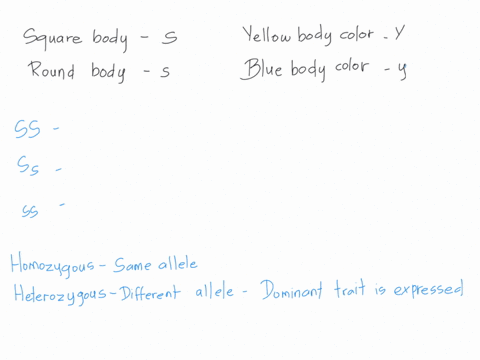 Square body - S
Yellow body color - Y
Round body - s
Blue body color - y
SS -
Ss -
ss -
Homozygous - Same allele
Heterozygous - Different allele - Dominant trait is expressed